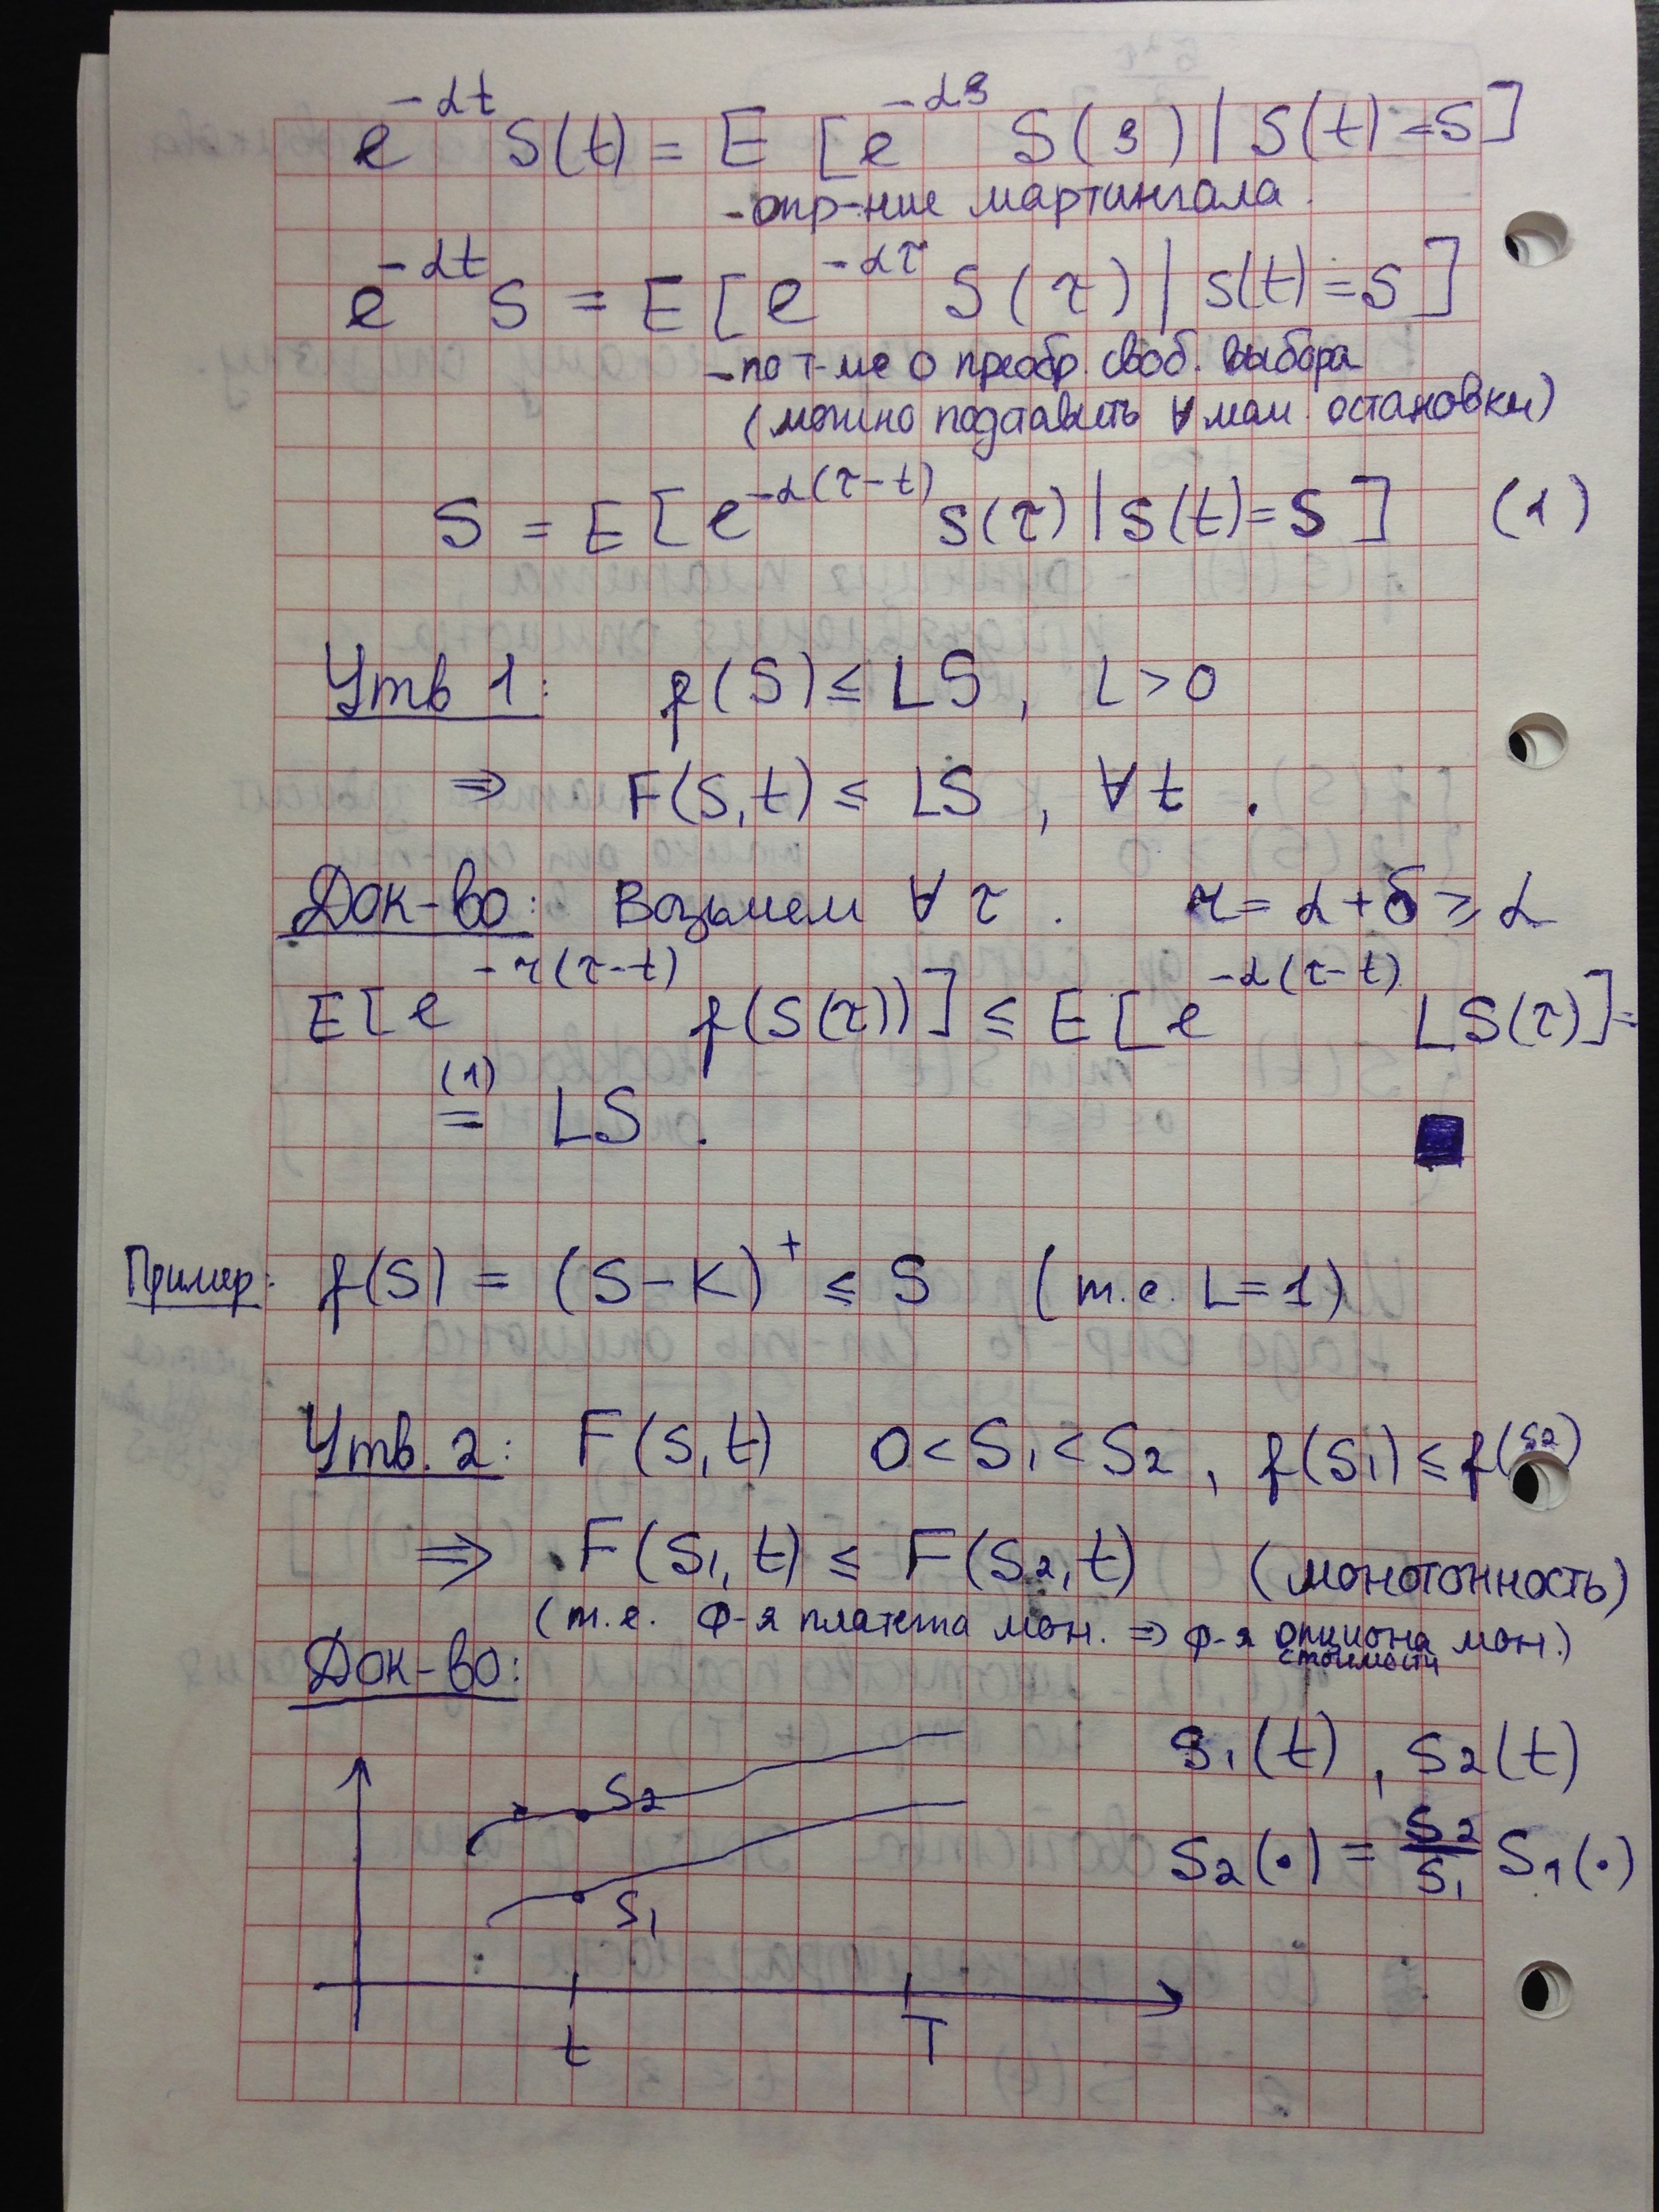 e^{-αt} S(t) = E [e^{-αs} S(s) | S(t) = S]
- опр-ние мартингала.
e^{-αt} S = E [e^{-ατ} S(τ) | S(t) = S]
- по т-ме о преобр. своб. выбора
(можно подставить ∀ мом. остановки)
S = E [e^{-α(τ-t)} S(τ) | S(t) = S] (1)
Утв 1: f(S) ≤ LS, L > 0
⇒ F(S,t) ≤ LS, ∀ t.
Док-во: Возьмем ∀ τ. r = α + δ ≥ α
E [e^{-r(τ-t)} f(S(τ))] ≤ E [e^{-α(τ-t)} LS(τ)] =
(1)
= LS. ■
Пример: f(S) = (S - K)^+ ≤ S (т.е. L = 1)
Утв. 2: F(S,t) 0 < S₁ < S₂, f(S₁) ≤ f(S₂)
⇒ F(S₁,t) ≤ F(S₂,t) (монотонность)
(т.е. ф-я платежа мон. ⇒ ф-я опциона мон.)
стоимости
Док-во:
S₁(t), S₂(t)
S₂
S₂(·) = S₂/S₁ S₁(·)
S₁
t T